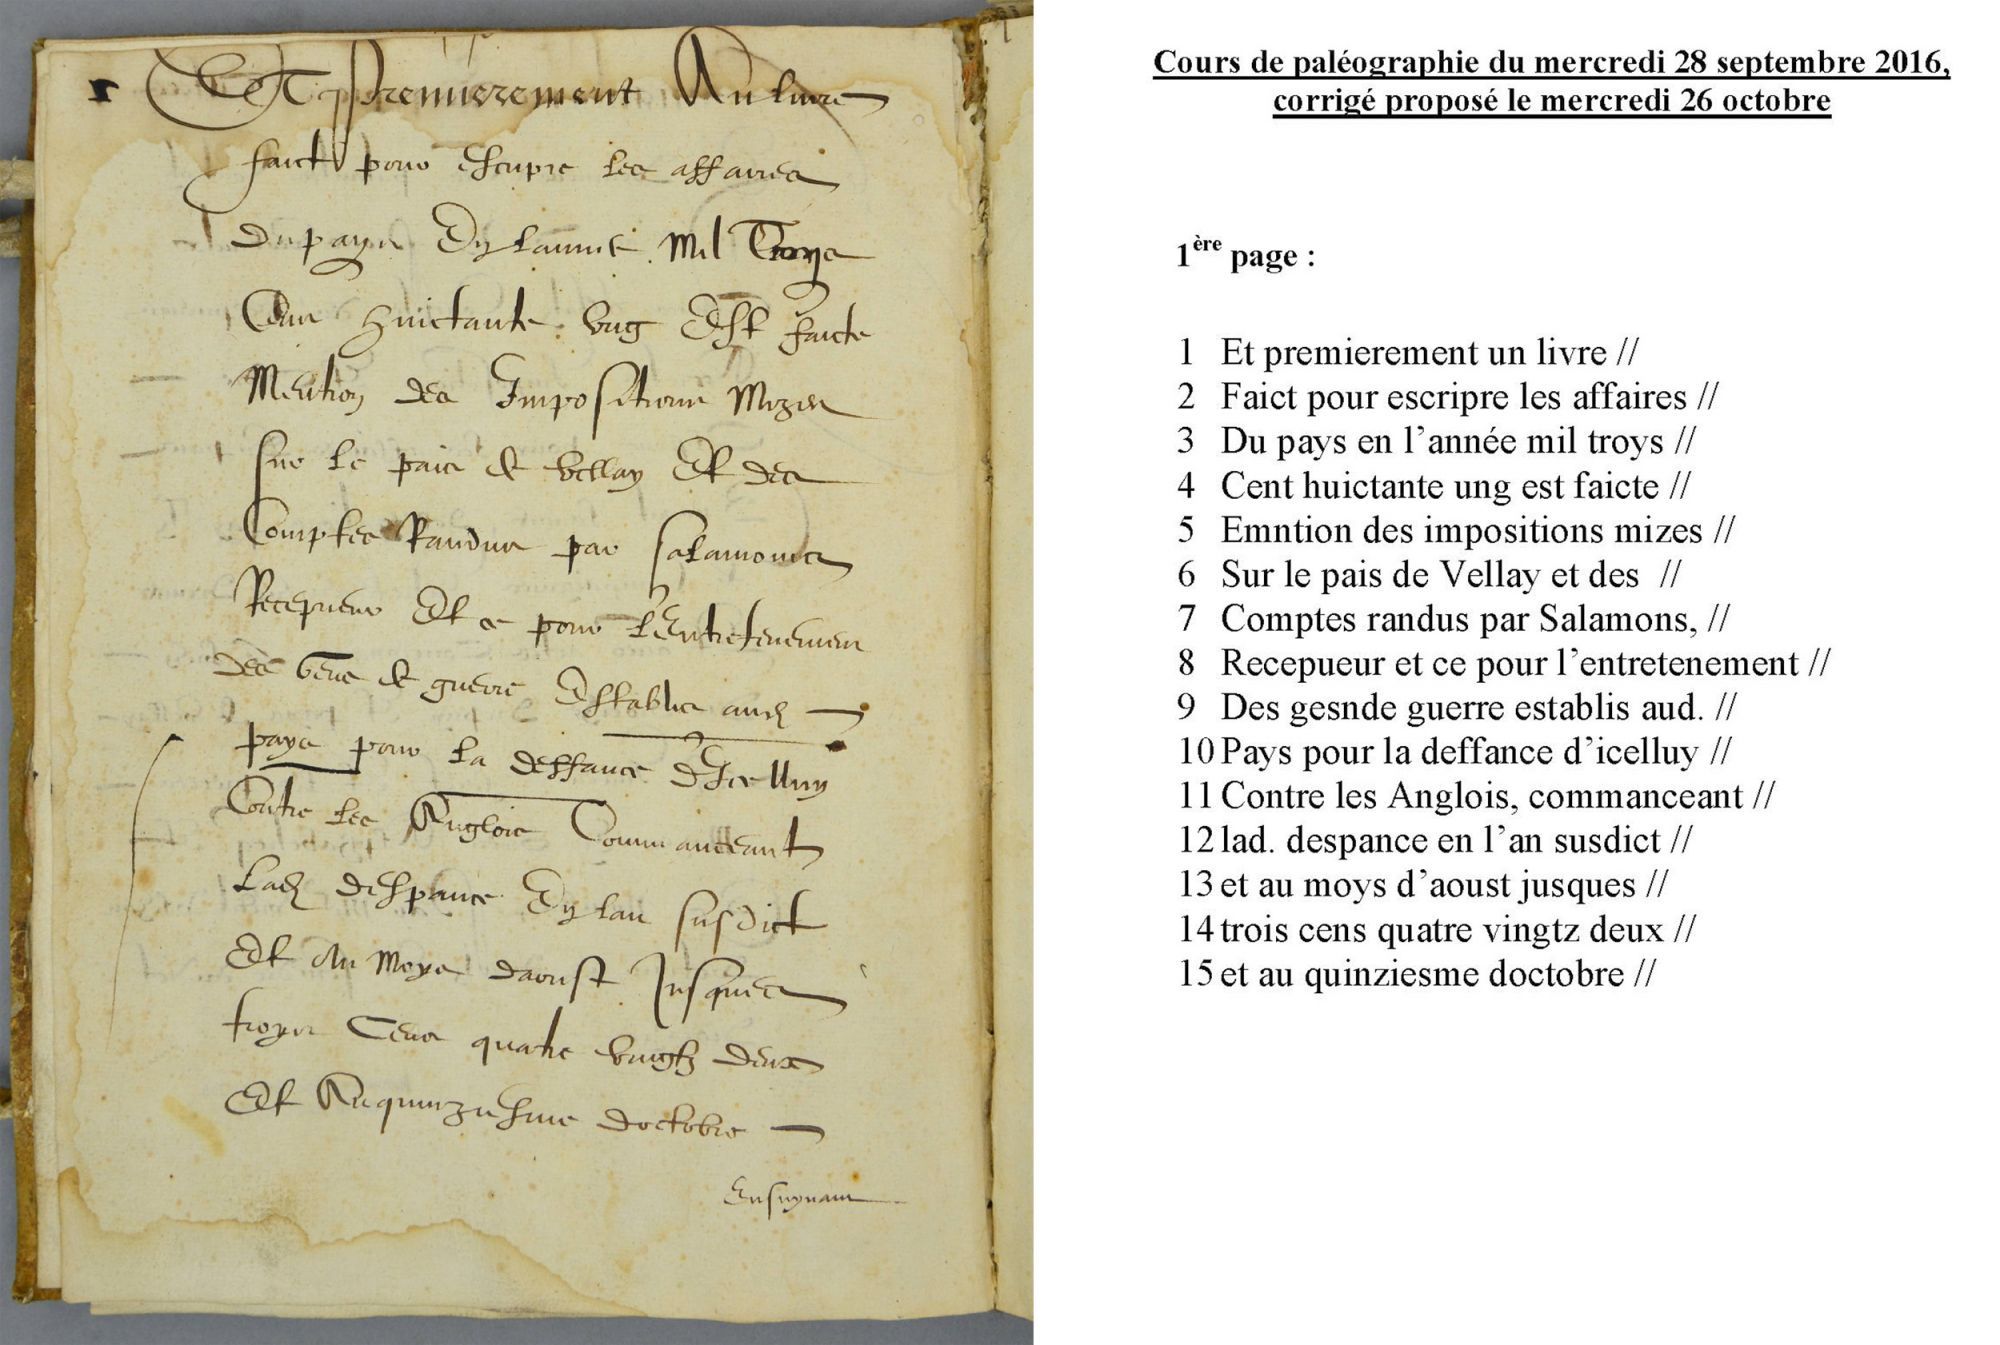 Et premierement Au livre
faict pour escripre les affaires
du pays En lannee mil Troys
Cens huictante ung Est faicte
Mention des Impositions Mizes
sur le pais de vellay Et des
Comptes Randus par salamons
Recepveur Et ce pour lEntretenement
des gens de guerre Establis aud
pays pour la deffance dIcelluy
Contre les Anglois Commanceant
Lad despance En lan susdict
Et Au Moys daoust Jusques
troys Cens quatre vingtz deux
Et Au quinziesme doctobre
Ensuyvant
Cours de paléographie du mercredi 28 septembre 2016,
corrigé proposé le mercredi 26 octobre
1ère page :
1 Et premierement un livre //
2 Faict pour escripre les affaires //
3 Du pays en l’année mil troys //
4 Cent huictante ung est faicte //
5 Emntion des impositions mizes //
6 Sur le pais de Vellay et des //
7 Comptes randus par Salamons, //
8 Recepueur et ce pour l’entretenement //
9 Des gesnde guerre establis aud. //
10 Pays pour la deffance d’icelluy //
11 Contre les Anglois, commanceant //
12 lad. despance en l’an susdict //
13 et au moys d’aoust jusques //
14 trois cens quatre vingtz deux //
15 et au quinziesme doctobre //